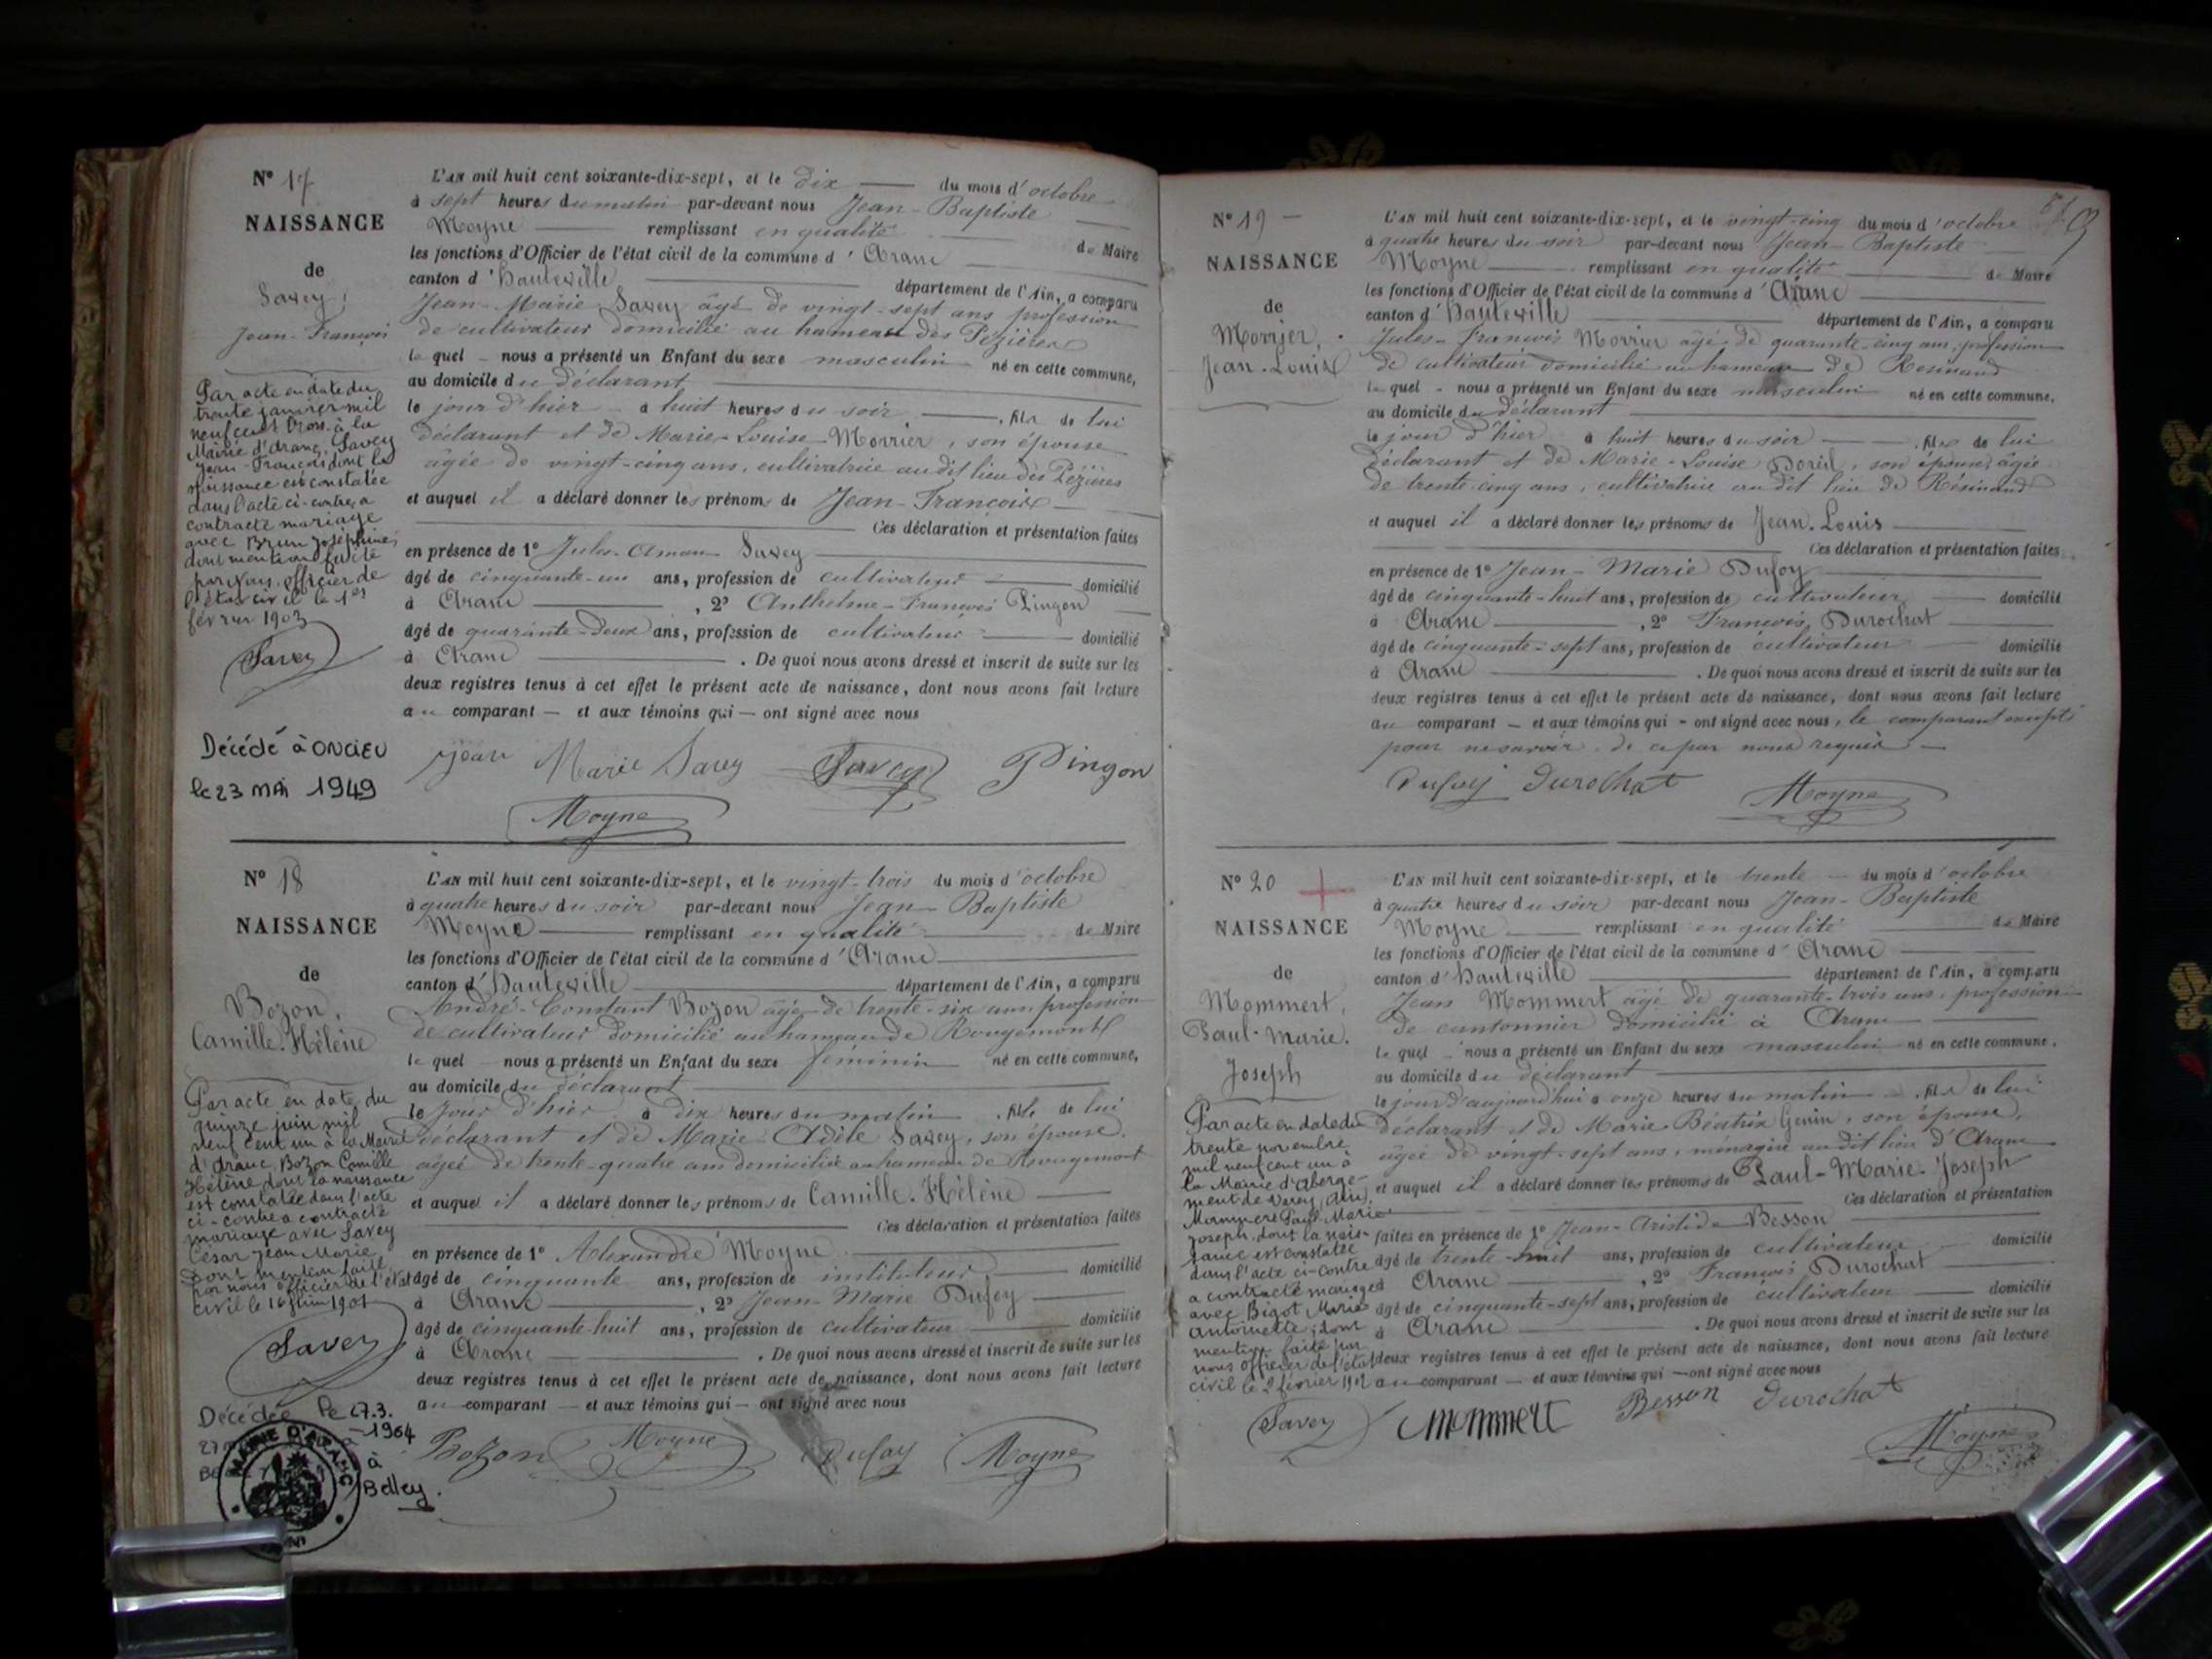 N° 17
NAISSANCE
de
Savey,
Jean-François
Par acte en date du
trente janvier mil
neuf cent trois à la
Mairie d'Aranc, Savey
Jean-François dont la
naissance est constatée
dans l'acte ci-contre, a
contracté mariage
avec Brun Joséphine,
dont mention faite
par Nous, officier de
l'état civil le 1er
février 1903
Savey
Décédé à ONCIEU
le 23 MAI 1949
L'AN mil huit cent soixante-dix-sept, et le dix du mois d'octobre
à sept heures du matin par-devant nous Jean-Baptiste
Moyne remplissant en qualité de Maire
les fonctions d'Officier de l'état civil de la commune d'Aranc
canton d'Hauteville département de l'Ain, a comparu
Jean-Marie Savey âgé de vingt-sept ans profession
de cultivateur domicilié au hameau des Pézières
lequel nous a présenté un Enfant du sexe masculin né en cette commune,
au domicile du déclarant
le jour d'hier à huit heures du soir, fils de lui
déclarant et de Marie-Louise Morrier, son épouse
âgée de vingt-cinq ans, cultivatrice au dit lieu des Pézières
et auquel il a déclaré donner les prénoms de Jean-François
Ces déclaration et présentation faites
en présence de 1° Jules Aman Savey
âgé de cinquante-un ans, profession de cultivateur domicilié
à Aranc, 2° Anthelme-François Pingon
âgé de quarante-deux ans, profession de cultivateur domicilié
à Aranc. De quoi nous avons dressé et inscrit de suite sur les
deux registres tenus à cet effet le présent acte de naissance, dont nous avons fait lecture
au comparant — et aux témoins qui — ont signé avec nous
Jean Marie Savey Savey Pingon
Moyne
N° 18
NAISSANCE
de
Bozon,
Camille-Hélène
Par acte en date du
quinze juin mil
neuf cent un à la Mairie
d'Aranc, Bozon Camille
Hélène dont la naissance
est constatée dans l'acte
ci-contre a contracté
mariage avec Savey
César Jean Marie
dont mention faite
par nous officier de l'état
civil le 16 juin 1901
Savey
Décédée le 27.3.
1964
à
Belley.
MAIRIE D'ARANC
AIN
L'AN mil huit cent soixante-dix-sept, et le vingt-trois du mois d'octobre
à quatre heures du soir par-devant nous Jean-Baptiste
Moyne remplissant en qualité de Maire
les fonctions d'Officier de l'état civil de la commune d'Aranc
canton d'Hauteville département de l'Ain, a comparu
André-Constant Bozon âgé de trente-six ans, profession
de cultivateur domicilié au hameau de Rougemont
lequel nous a présenté un Enfant du sexe féminin né en cette commune,
au domicile du déclarant
le jour d'hier à dix heures du matin, fille de lui
déclarant et de Marie Adèle Savey, son épouse,
âgée de trente-quatre ans domiciliée au hameau de Rougemont
et auquel il a déclaré donner les prénoms de Camille-Hélène
Ces déclaration et présentation faites
en présence de 1° Alexandre Moyne
âgé de cinquante ans, profession de instituteur domicilié
à Aranc, 2° Jean-Marie Dufoy
âgé de cinquante-huit ans, profession de cultivateur domicilié
à Aranc. De quoi nous avons dressé et inscrit de suite sur les
deux registres tenus à cet effet le présent acte de naissance, dont nous avons fait lecture
au comparant — et aux témoins qui — ont signé avec nous
Bozon Moyne Dufoy Moyne
N° 19
NAISSANCE
de
Morrier,
Jean-Louis
L'AN mil huit cent soixante-dix-sept, et le vingt-cinq du mois d'octobre
à quatre heures du soir par-devant nous Jean-Baptiste
Moyne remplissant en qualité de Maire
les fonctions d'Officier de l'état civil de la commune d'Aranc
canton d'Hauteville département de l'Ain, a comparu
Jules-François Morrier âgé de quarante-cinq ans, profession
de cultivateur domicilié au hameau de Résinand
lequel nous a présenté un Enfant du sexe masculin né en cette commune,
au domicile du déclarant
le jour d'hier à huit heures du soir, fils de lui
déclarant et de Marie-Louise, son épouse, âgée
de trente-cinq ans, cultivatrice au dit lieu de Résinand
et auquel il a déclaré donner les prénoms de Jean-Louis
Ces déclaration et présentation faites
en présence de 1° Jean-Marie Dufoy
âgé de cinquante-huit ans, profession de cultivateur domicilié
à Aranc, 2° François Durochat
âgé de cinquante-sept ans, profession de cultivateur domicilié
à Aranc. De quoi nous avons dressé et inscrit de suite sur les
deux registres tenus à cet effet le présent acte de naissance, dont nous avons fait lecture
au comparant — et aux témoins qui — ont signé avec nous, le comparant excepté
pour ne savoir, de ce par nous requis
Dufoy Durochat Moyne
N° 20
NAISSANCE
de
Mommert,
Paul-Marie-
Joseph
Par acte en date du
trente novembre
mil neuf cent un à
la Mairie d'Aberge-
ment-de-Varey (Ain),
Mommert Paul-Marie
Joseph dont la nais-
sance est constatée
dans l'acte ci-contre
a contracté mariage
avec Bigot Marie
Antoinette, dont
mention faite par
nous officier de l'état
civil le 2 février 1902
Savey
L'AN mil huit cent soixante-dix-sept, et le trente du mois d'octobre
à quatre heures du soir par-devant nous Jean-Baptiste
Moyne remplissant en qualité de Maire
les fonctions d'Officier de l'état civil de la commune d'Aranc
canton d'Hauteville département de l'Ain, a comparu
Jean Mommert âgé de quarante-trois ans, profession
de cantonnier domicilié à Aranc
lequel nous a présenté un Enfant du sexe masculin né en cette commune,
au domicile du déclarant
le jour d'aujourd'hui à onze heures du matin, fils de lui
déclarant et de Marie Béatrix Genin, son épouse,
âgée de vingt-sept ans, ménagère au dit lieu d'Aranc
et auquel il a déclaré donner les prénoms de Paul-Marie-Joseph
Ces déclaration et présentation
faites en présence de 1° Jean-Aristide Besson
âgé de trente-huit ans, profession de cultivateur domicilié
à Aranc, 2° François Durochat
âgé de cinquante-sept ans, profession de cultivateur domicilié
à Aranc. De quoi nous avons dressé et inscrit de suite sur les
deux registres tenus à cet effet le présent acte de naissance, dont nous avons fait lecture
au comparant — et aux témoins qui — ont signé avec nous
Mommert Besson Durochat
Moyne